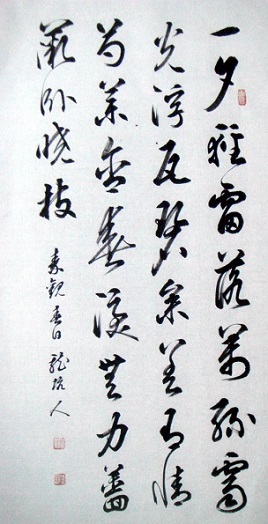 一夕輕雷落萬絲霽
光浮瓦碧參差有情
芍藥含春淚無力薔
薇臥曉枝
秦觀春日 龍人